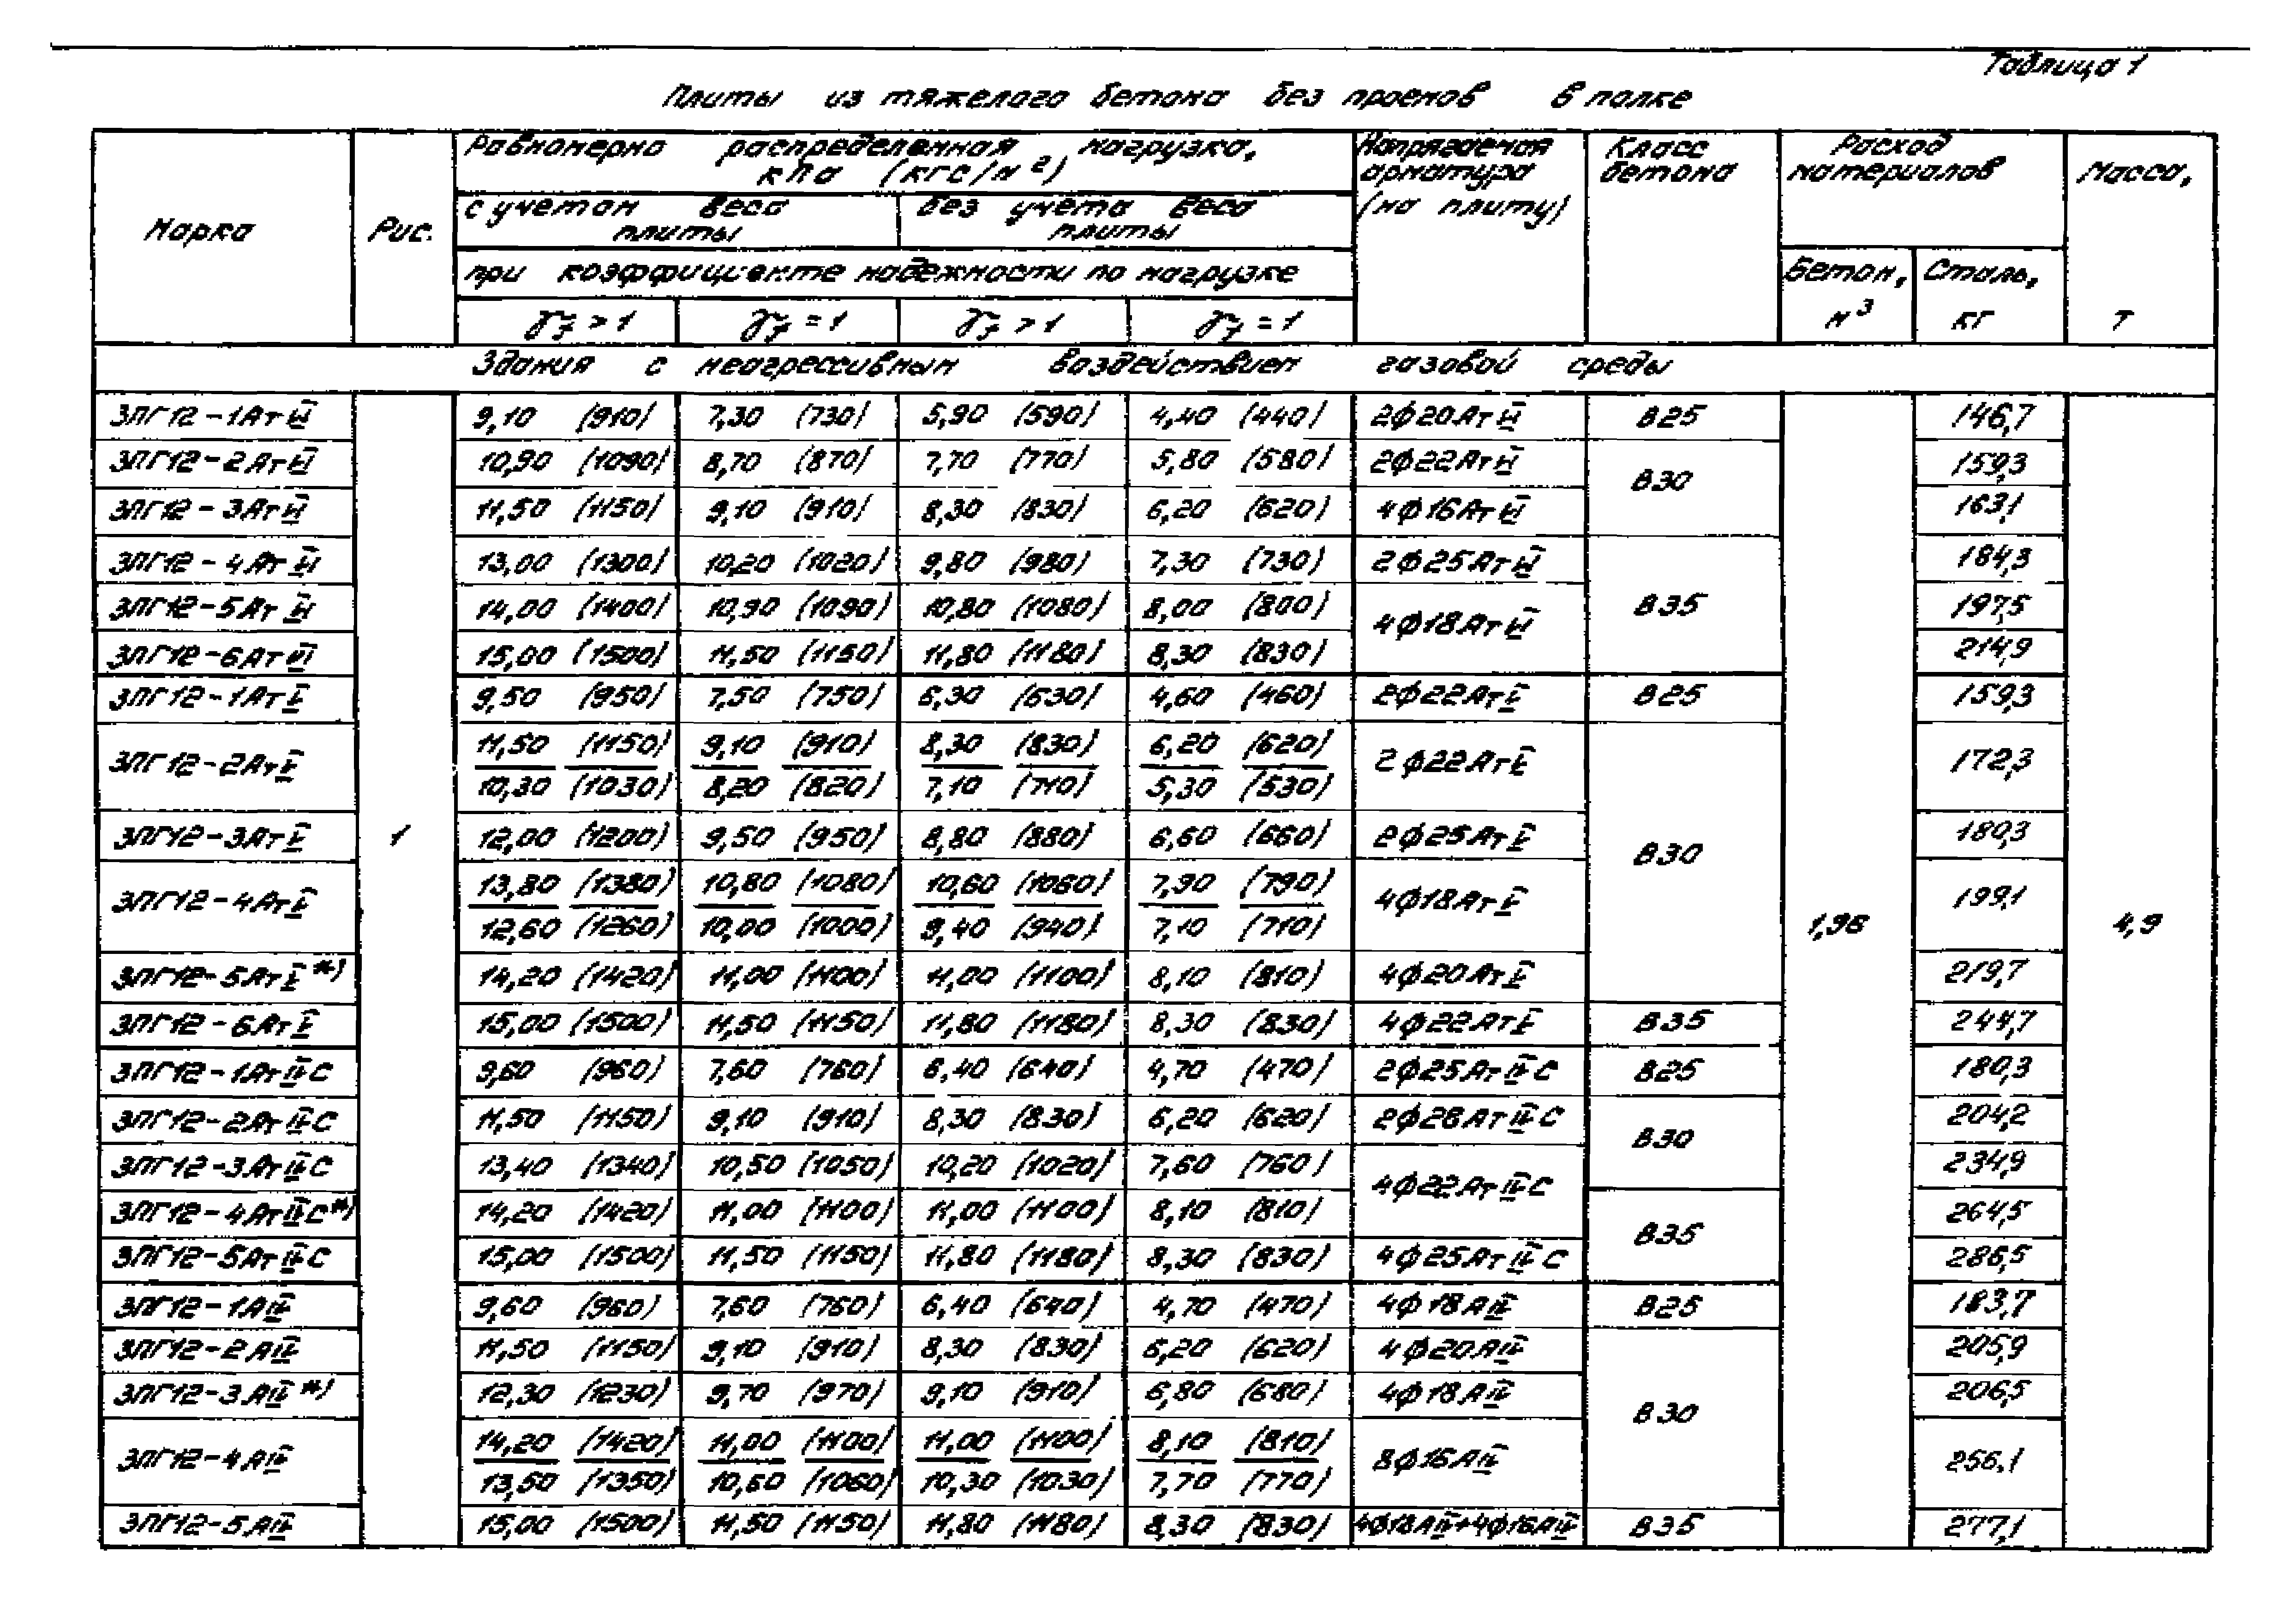 Таблица 1
Плиты из тяжелого бетона без проемов в полке
Марка Рис. Равномерно распределенная нагрузка, кПа (кгс/м²) Напрягаемая арматура (на плиту) Класс бетона Расход материалов Масса, т
с учетом веса плиты без учета веса плиты
при коэффициенте надежности по нагрузке Бетон, м³ Сталь, кг
γf > 1 γf = 1 γf > 1 γf = 1
Здания с неагрессивным воздействием газовой среды
3ПГ12-1АтVI 9,10 (910) 7,30 (730) 5,90 (590) 4,40 (440) 2ф20АтVI В25 146,7
3ПГ12-2АтVI 10,90 (1090) 8,70 (870) 7,70 (770) 5,80 (580) 2ф22АтVI В30 159,3
3ПГ12-3АтVI 11,50 (1150) 9,10 (910) 8,30 (830) 6,20 (620) 4ф16АтVI 163,1
3ПГ12-4АтVI 13,00 (1300) 10,20 (1020) 9,80 (980) 7,30 (730) 2ф25АтVI В35 184,3
3ПГ12-5АтVI 14,00 (1400) 10,90 (1090) 10,80 (1080) 8,00 (800) 4ф18АтVI 197,5
3ПГ12-6АтVI 15,00 (1500) 11,50 (1150) 11,80 (1180) 8,30 (830) 214,9
3ПГ12-1АтV 9,50 (950) 7,50 (750) 6,30 (630) 4,60 (460) 2ф22АтV В25 159,3
3ПГ12-2АтV 11,50 (1150) 9,10 (910) 8,30 (830) 6,20 (620) 2ф22АтV В30 172,3
10,30 (1030) 8,20 (820) 7,10 (710) 5,30 (530)
3ПГ12-3АтV 1 12,00 (1200) 9,50 (950) 8,80 (880) 6,60 (660) 2ф25АтV 180,3
3ПГ12-4АтV 13,80 (1380) 10,80 (1080) 10,60 (1060) 7,90 (790) 4ф18АтV 1,96 199,1 4,9
12,60 (1260) 10,00 (1000) 9,40 (940) 7,10 (710)
3ПГ12-5АтV *) 14,20 (1420) 11,00 (1100) 11,00 (1100) 8,10 (810) 4ф20АтV 219,7
3ПГ12-6АтV 15,00 (1500) 11,50 (1150) 11,80 (1180) 8,30 (830) 4ф22АтV В35 244,7
3ПГ12-1АтIVС 9,60 (960) 7,60 (760) 6,40 (640) 4,70 (470) 2ф25АтIVС В25 180,3
3ПГ12-2АтIVС 11,50 (1150) 9,10 (910) 8,30 (830) 6,20 (620) 2ф28АтIVС В30 204,2
3ПГ12-3АтIVС 13,40 (1340) 10,50 (1050) 10,20 (1020) 7,60 (760) 4ф22АтIVС 234,9
3ПГ12-4АтIVС*) 14,20 (1420) 11,00 (1100) 11,00 (1100) 8,10 (810) В35 264,5
3ПГ12-5АтIVС 15,00 (1500) 11,50 (1150) 11,80 (1180) 8,30 (830) 4ф25АтIVС 286,5
3ПГ12-1АIV 9,60 (960) 7,60 (760) 6,40 (640) 4,70 (470) 4ф18АIV В25 183,7
3ПГ12-2АIV 11,50 (1150) 9,10 (910) 8,30 (830) 6,20 (620) 4ф20АIV В30 205,9
3ПГ12-3АIV *) 12,30 (1230) 9,70 (970) 9,10 (910) 6,80 (680) 4ф18АIV 206,5
3ПГ12-4АIV 14,20 (1420) 11,00 (1100) 11,00 (1100) 8,10 (810) 8ф16АIV 256,1
13,50 (1350) 10,60 (1060) 10,30 (1030) 7,70 (770)
3ПГ12-5АIV 15,00 (1500) 11,50 (1150) 11,80 (1180) 8,30 (830) 4ф18АIV+4ф16АIV В35 277,1